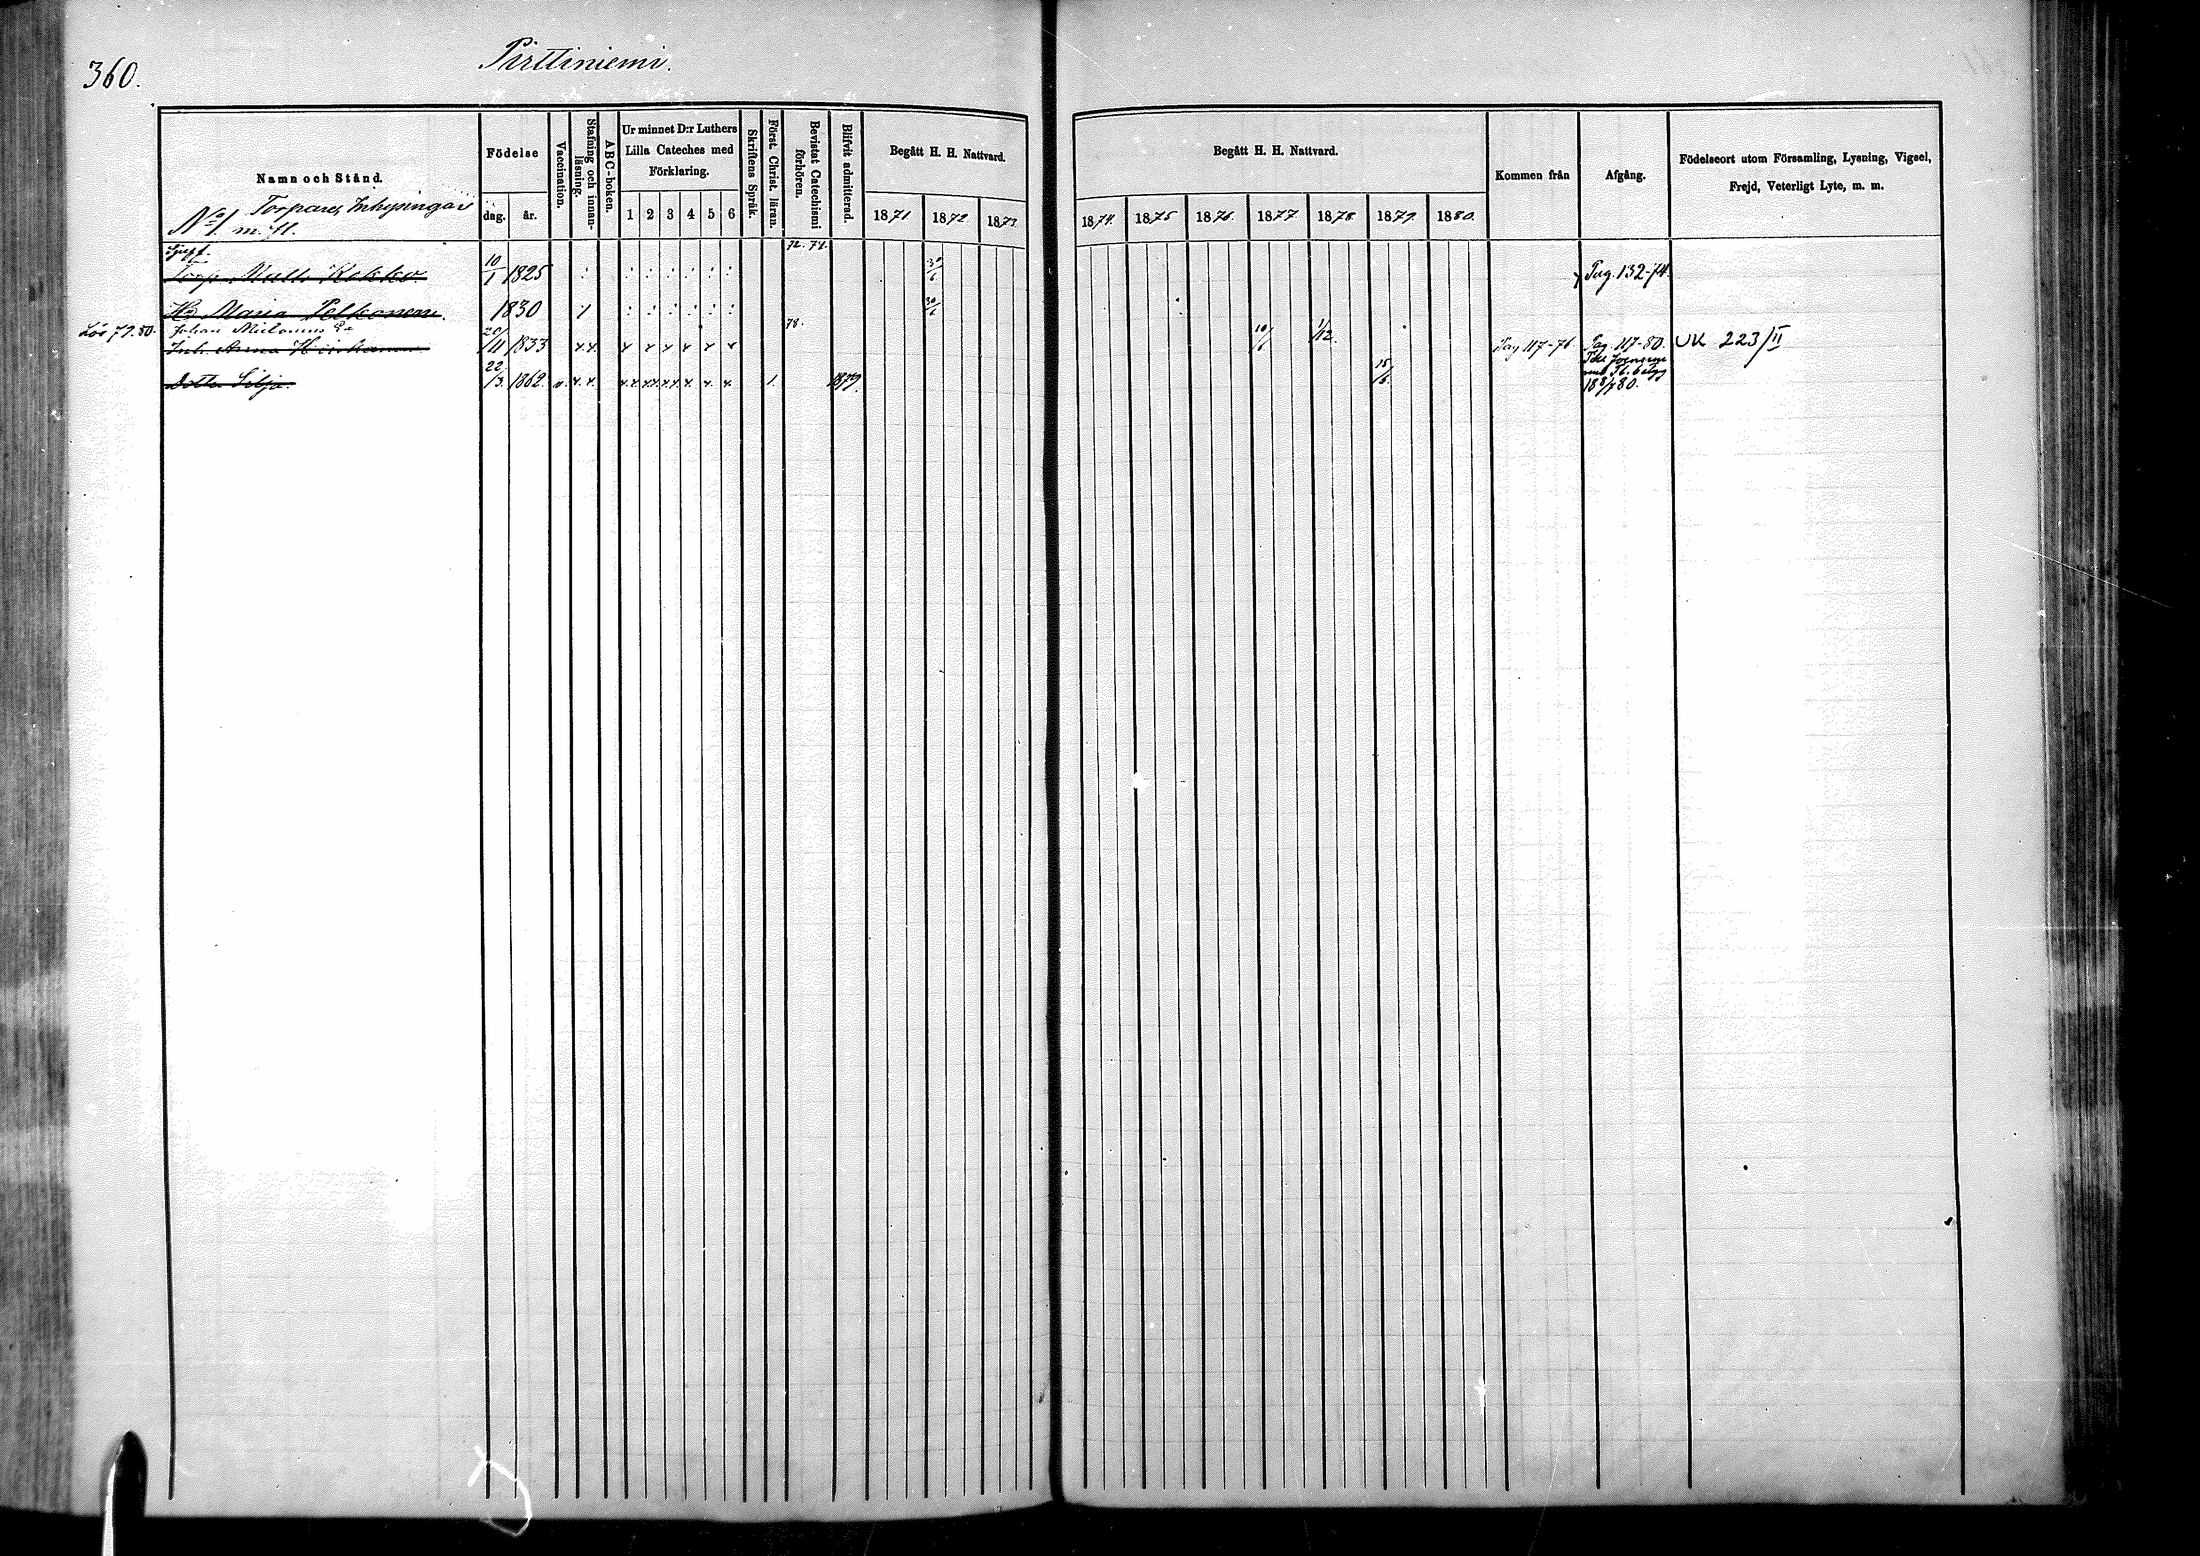 360.
Pirttiniemi.
Namn och Stånd.
Födelse
dag. år.
Vaccination.
Stafning och innanläsning.
ABC-boken.
Ur minnet D:r Luthers Lilla Cateches med Förklaring.
1 2 3 4 5 6
Skriftens Språk.
Först. Christ. läran.
Bevistat Catechismi förhören.
Blifvit admitterad.
Begått H. H. Nattvard.
1871 1872 1873
Begått H. H. Nattvard.
1874. 1875 1876. 1877 1878. 1879 1880.
Kommen från
Afgång.
Födelseort utom Församling, Lysning, Vigsel,
Frejd, Veterligt Lyte, m. m.
Torpare, Inhysingar
No 1. m. fl.
72. 74.
Torp. Matts Kokko 10/1 1825 30/6 Pag. 132-74.
H. Maria Pelkonen. 1830 1 30/6
Lös 79.80. Johan 78.
Inh. Anna 20/11 1833 x x x x x x x x 10/6 1/12. Pag 117-76 Pag. 117-80. UK 223/II
Dotter Silja 22/3. 1862. v. x. x. x x x x x x x x x x 1. 1879. 15/6. Joensuu
18 8/7 80.